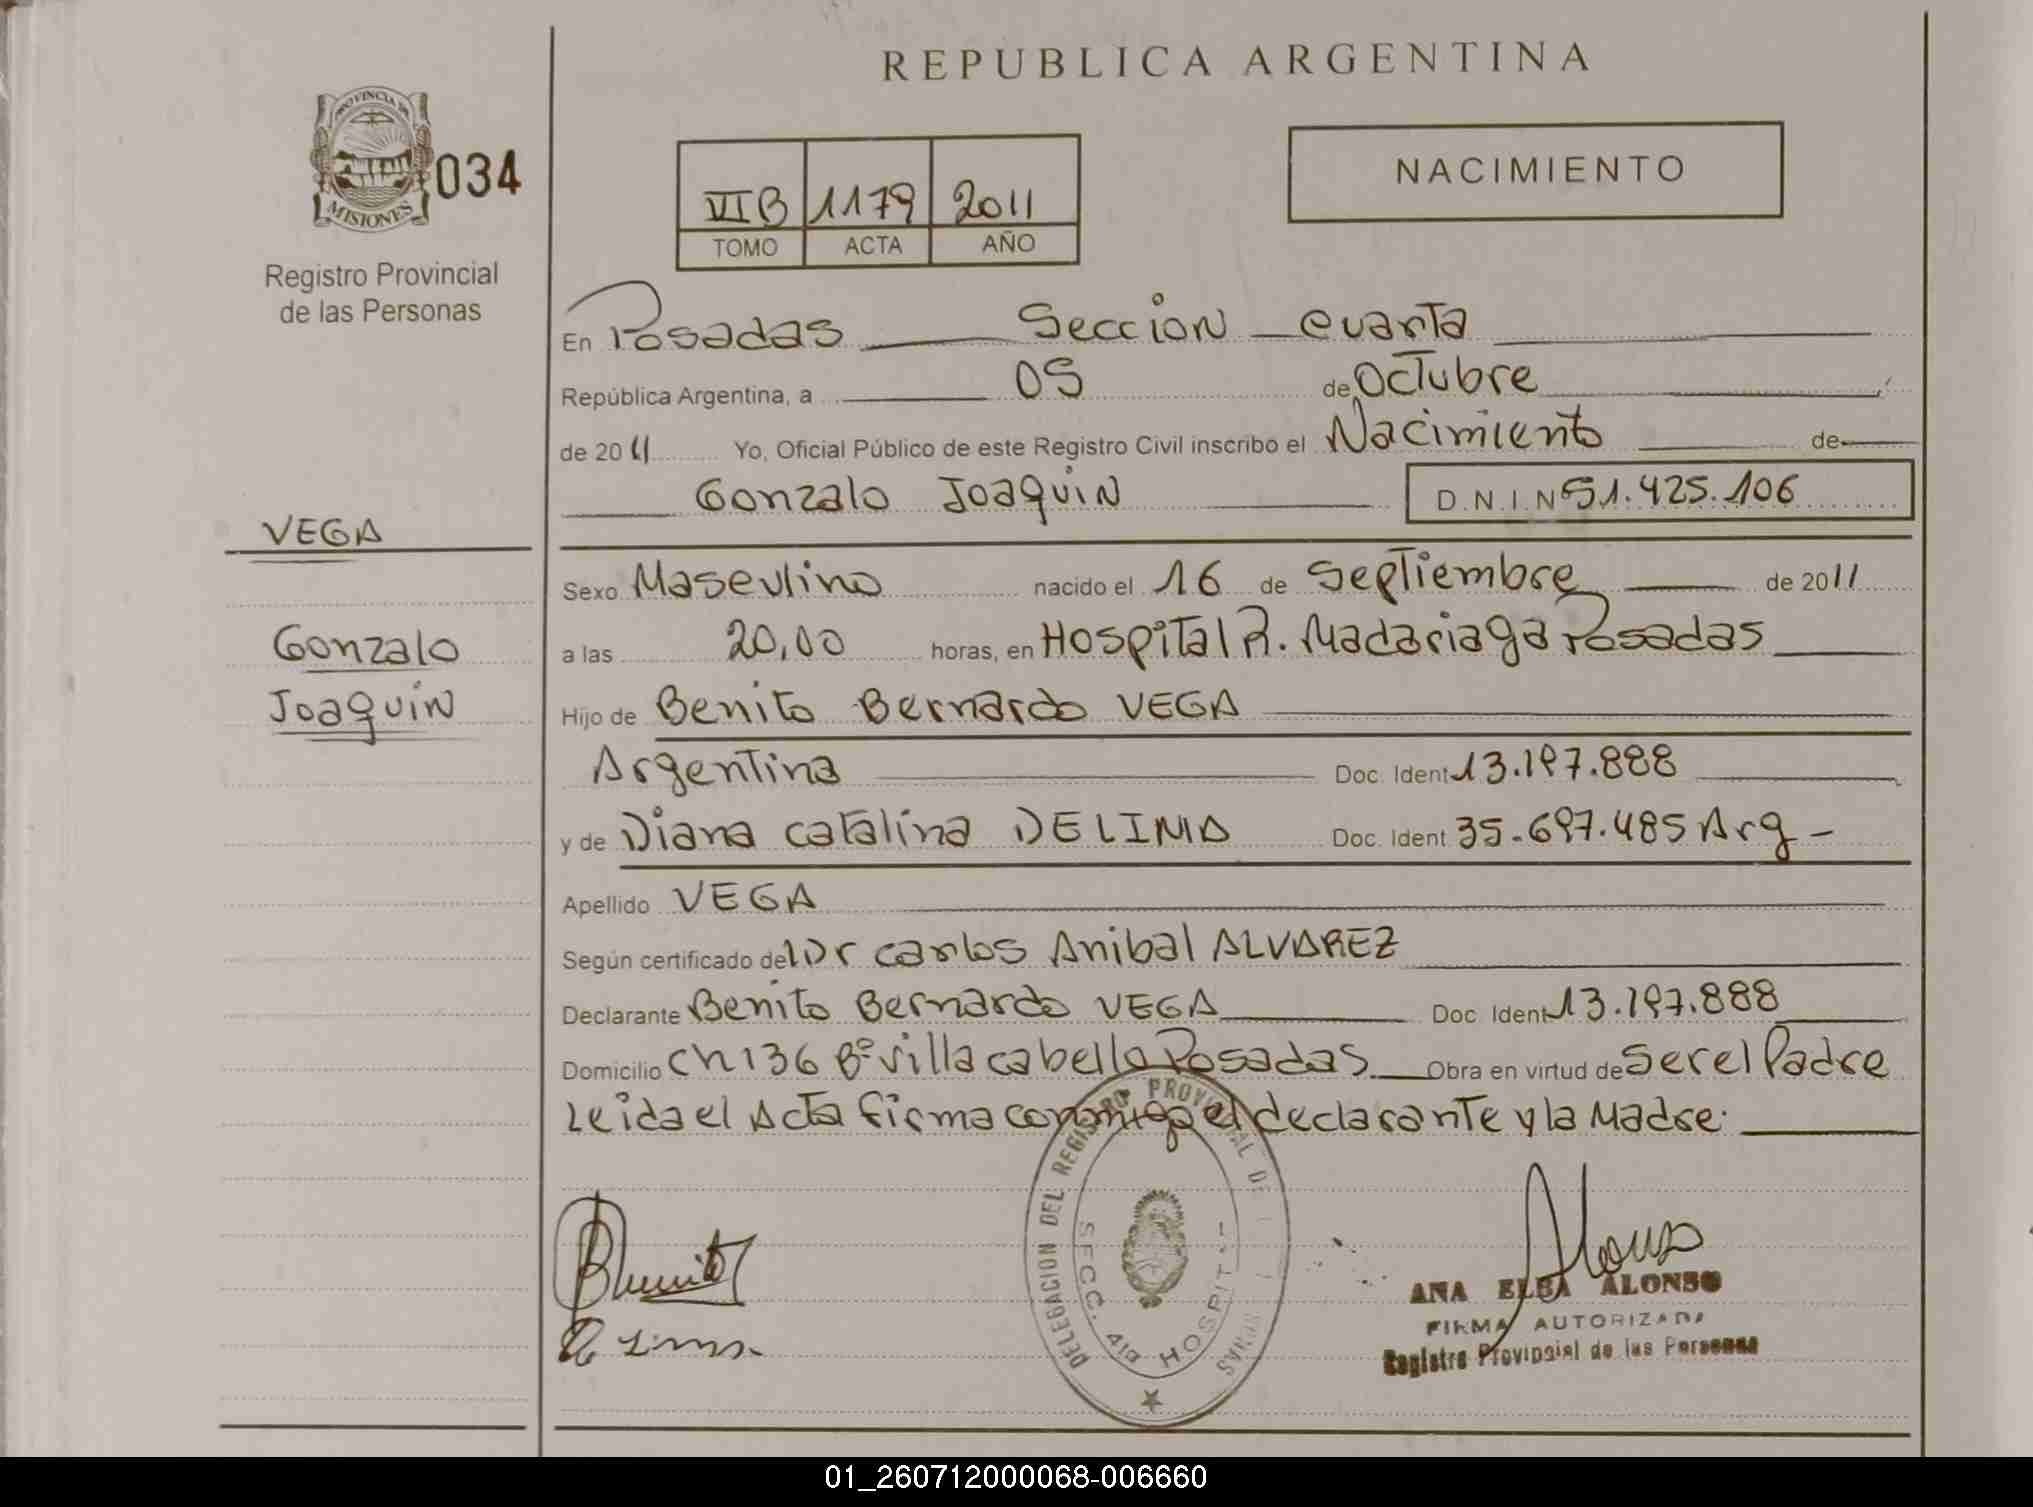 REPUBLICA ARGENTINA
PROVINCIA DE
MISIONES
034
Registro Provincial
de las Personas
VIB 1179 2011
TOMO ACTA AÑO
NACIMIENTO
En Posadas Seccion cuarta
República Argentina, a 05 de Octubre
de 2011 Yo, Oficial Público de este Registro Civil inscribo el Nacimiento de
Gonzalo Joaquin D.N.I.N 51.425.106
VEGA
Gonzalo
Joaquin
Sexo Masculino nacido el 16 de Septiembre de 2011
a las 20,00 horas, en Hospital R. Madariaga Posadas
Hijo de Benito Bernardo VEGA
Argentina Doc. Ident 13.197.888
y de Diana Catalina DELIMA Doc. Ident 35.697.485 Arg
Apellido VEGA
Según certificado del Dr Carlos Anibal ALVAREZ
Declarante Benito Bernardo VEGA Doc Ident 13.197.888
Domicilio Ch 136 Bº Villa Cabello Posadas Obra en virtud de Ser el Padre
Leida el Acta firma conmigo el declarante y la Madre.
DELEGACION DEL REGISTRO PROVINCIAL DE
SECC. 4ta HOSPIT.
Benito
Alonso
ANA ELBA ALONSO
FIRMA AUTORIZADA
Registro Provincial de las Personas
01_260712000068-006660